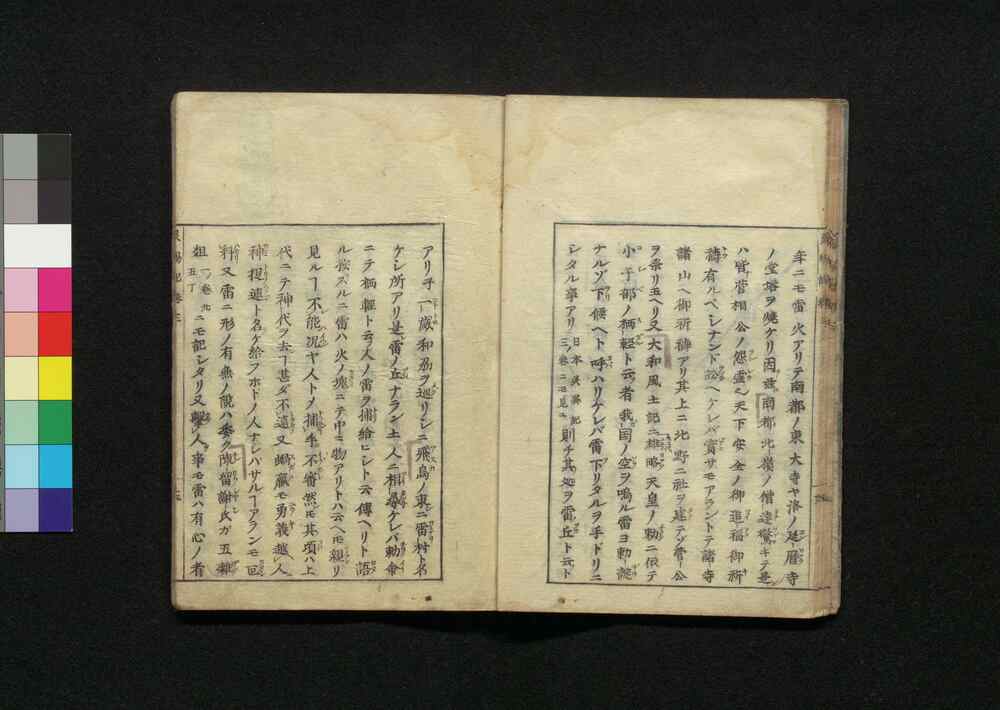 年ニモ雷火アリテ南都ノ東大寺ヤ洛ノ延暦寺
ノ堂塔ヲ焼ケリ因茲南都北嶺ノ僧達驚キテ是
ハ皆菅相公ノ怨霊也天下安全ノ御進福御祈
祷有ルベシナンド訟ヘケレバ実サモアラントテ諸寺
諸山ヘ御祈祷アリ其上ニ北野ニ社ヲ建テヅ菅公
ヲ祭リ玉ヘリ又大和風土記ニ雄略天皇ノ勅ニ依テ
小子部ノ栖軽ト云フ者我国ノ空ヲ鳴ル雷ヨ勅諚
ナルゾ下候ヘト呼ハリケレバ雷下リタルヲ手ドリニ
シタル事アリ日本異記三ノ巻ニモ見ユ則チ其処ヲ雷丘ト云ト
アリ予一歳和州ヲ巡リシニ飛鳥ノ東ニ雷村ト名
ケシ所アリ是雷ノ丘ナラン土人ニ相尋ケレバ勅命
ニテ栖軽ト云フ人ノ雷ヲ捕給ヒシト云傳ヘリト語
ル按スルニ雷ハ火ノ塊ニテ中ニ物アリトハ云ヘモ親リ
見ルヿ不能况ヤ人トメ捕手不審然モ其項ハ上
代ニテ神代ヲ去ヿ甚ダ不遠又蜾蠃モ勇義越レ人
神捷速ト名ケ給フホドノ人ナレバサルヿアランモ叵
料又雷ニ形ノ有無ノ説ハ委ク陳留謝氏ガ五雑
俎一ノ巻九五丁ニモ記シタリ又撃レ人事モ雷ハ有心ノ者